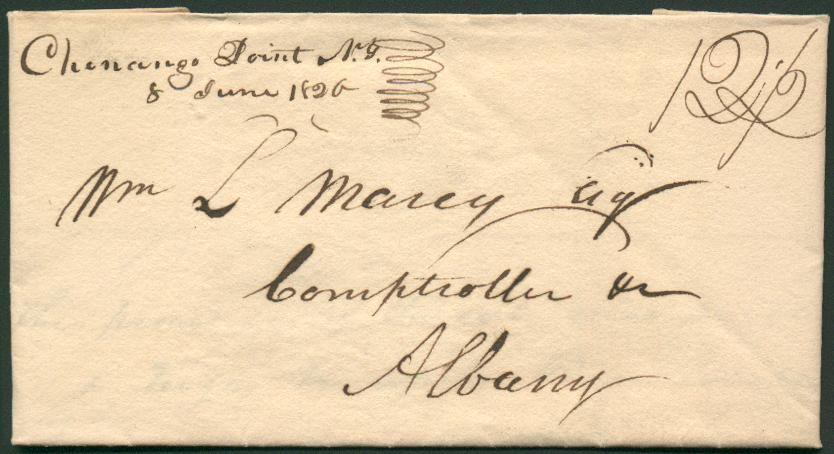 Chenango Point N.Y.
8 June 1826
12½
Wm L Marcy Esqr
Comptroller &c
Albany